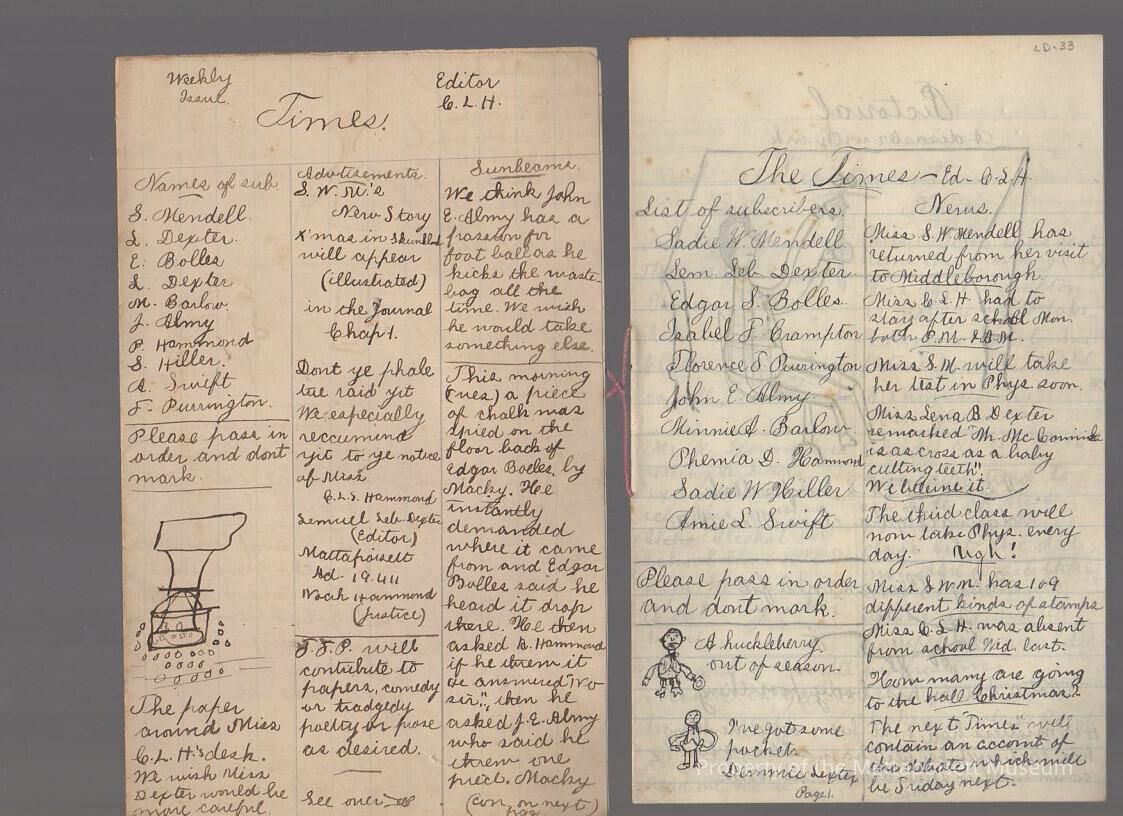 Weekly
Issue.
Editor
C. L. H.
Times.
Names of sub.
S. Mendell.
L. Dexter.
E. Bolles
L. Dexter
M. Barlow.
J. Almy
P. Hammond
S. Hiller.
A. Swift
F. Purrington.
Please pass in
order and dont
mark.
The paper
around Miss
C. L. H.'s desk.
We wish Miss
Dexter would be
more careful.
Advutisements.
S. W. M.'s
New Story
X'mas in
will appear
(illustrated)
in the Journal
Chap 1.
Dont ye phale
tue raid yit
We especially
reccumend
yit to ye notice
of Miss
C.L.S. Hammond
Samuel Leb. Dexter
(Editor)
Mattapoisett
Ad. 19.411
Noah Hammond
(Justice)
F. F. P. will
contribute to
papers, comedy
or tradgedy
poetry or prose
as desired.
See over
Sunbeams.
We think John
E. Almy has a
passion for
foot ball as he
kicks the waste
bag all the
time. We wish
he would take
something else.
This morning
(Tues) a piece
of chalk was
spied on the
floor back of
Edgar Bolles, by
Macky. He
instantly
demanded
where it came
from and Edgar
Bolles said he
heard it drop
there. He then
asked B. Hammond
if he threw it
he answered "No
sir;" then he
asked J. E. Almy
who said he
threw one
piece. Macky
(Con. on next
page)
LD-33
Pictorial
The Times - Ed- C. L. H.
List of subscribers.
Sadie W. Mendell
Lem. Leb. Dexter
Edgar S. Bolles.
Isabel F. Crampton
Florence F. Purrington
John E. Almy
Minnie A. Barlow
Phemia D. Hammond
Sadie W Hiller
Amie L. Swift
Please pass in order
and dont mark.
A huckleberry
out of season.
I've got some
pocket.
Lemmie Dexter
Page 1.
News.
Miss S. W. Mendell has
returned from her visit
to Middleborough.
Miss C. L. H had to
stay after school Mon.
both P.M. & A.M.
Miss S. M. will take
her test in Phys soon.
Miss Lena B Dexter
remarked "Mr. Mc-Cormick
is as cross as a baby
cutting teeth".
We believe it
The third class will
now take Phys. every
day. Ugh!
Miss S W M. has 109
different kinds of stamps
Miss C. L. H. was absent
from school Wed. last.
How many are going
to the hall Christmas?
The next "Times" will
contain an account of
the debate which will
be Friday next.
Property of the Mattapoisett Museum